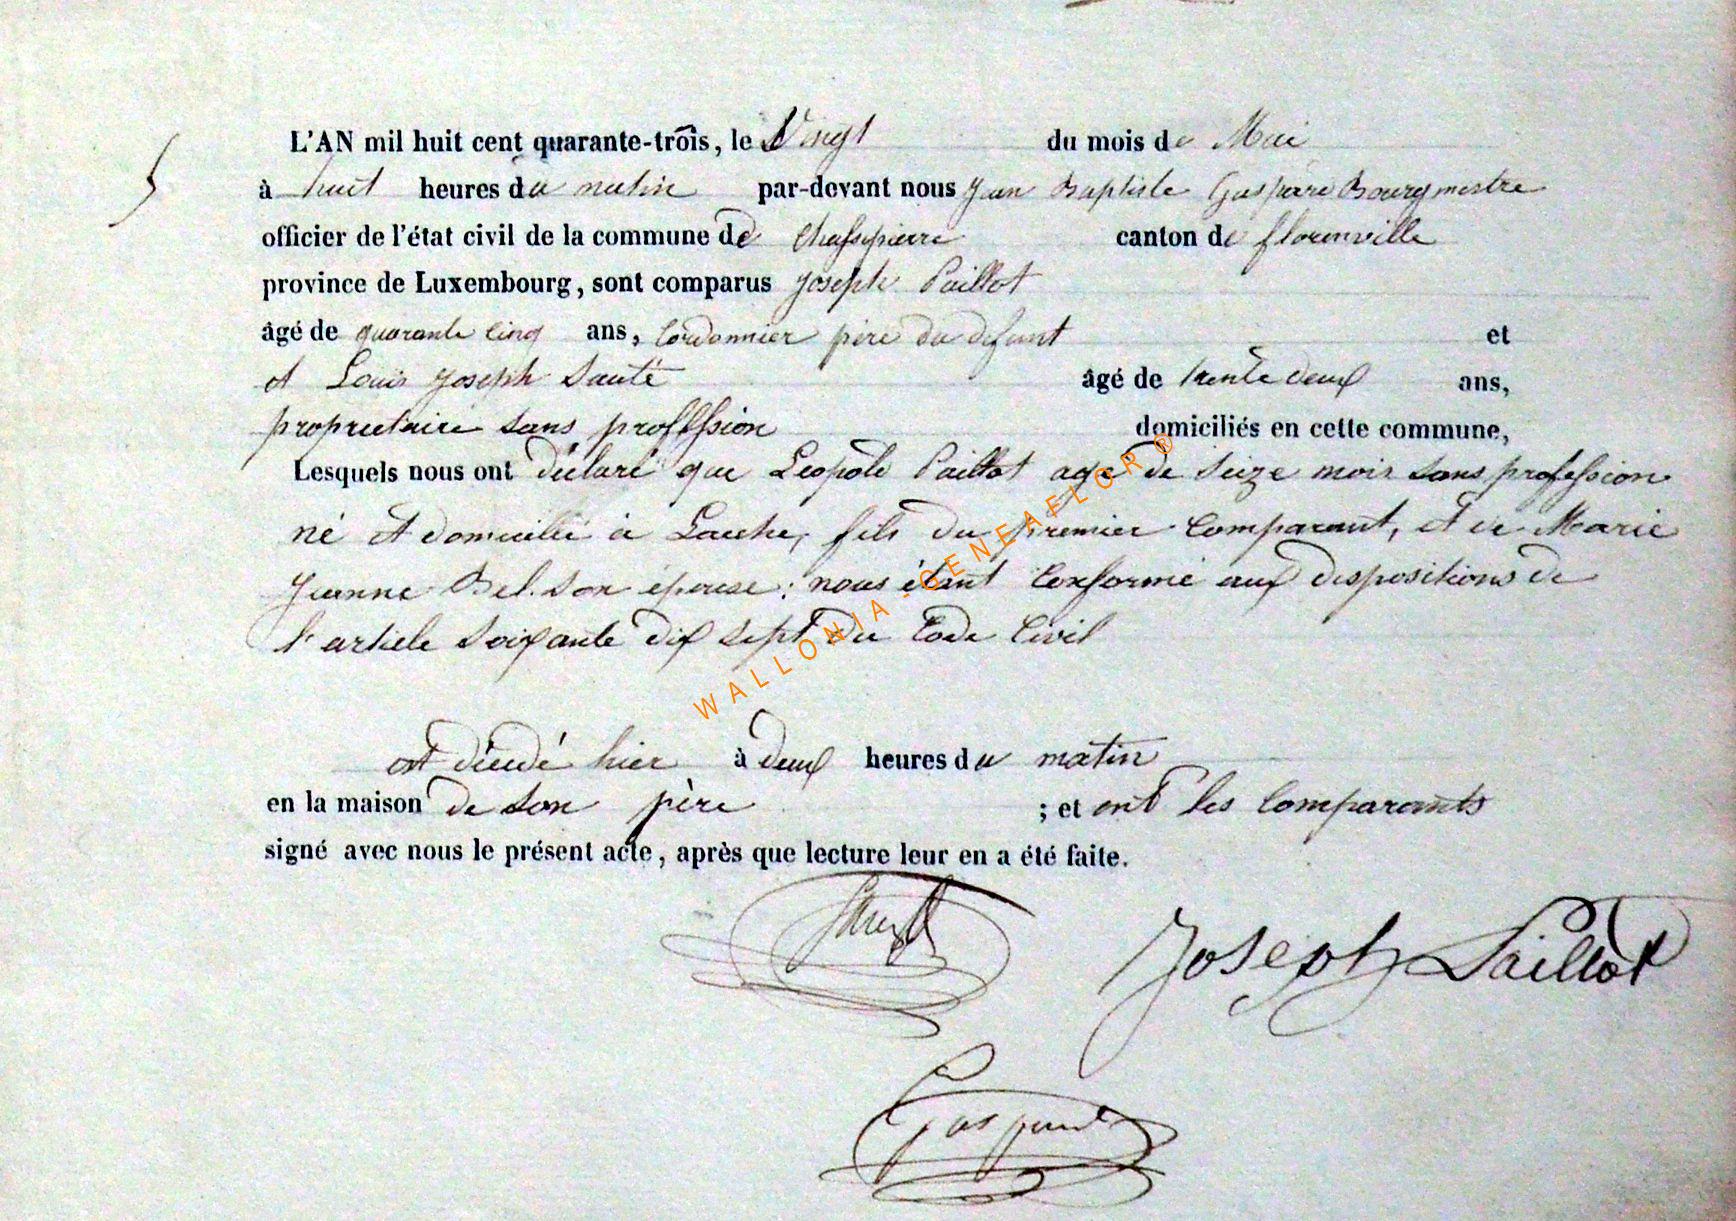 5
L'AN mil huit cent quarante-trois, le Vingt du mois de Mai
à huit heures du matin par-devant nous Jean Baptiste Gaspare Bourgmestre
officier de l'état civil de la commune de Chassepierre canton de florenville
province de Luxembourg, sont comparus Joseph Paillot
âgé de quarante Cinq ans, Cordonnier père du defunt et
et Louis Joseph Sauté âgé de trente deux ans,
proprietaire sans profession domiciliés en cette commune,
Lesquels nous ont déclaré que Leopole Paillot agé de Seize mois sans profession
né et domicilié à Laiche, fils du premier Comparant, et de Marie
Jeanne Bel. Son épouse; nous étant Conformé aux dispositions de
l'article Soixante dix sept du Code Civil
est décédé hier à deux heures du matin
en la maison de son père ; et ont les Comparants
signé avec nous le présent acte, après que lecture leur en a été faite.
Joseph Paillot
WALLONIA - GENEAFLOR®